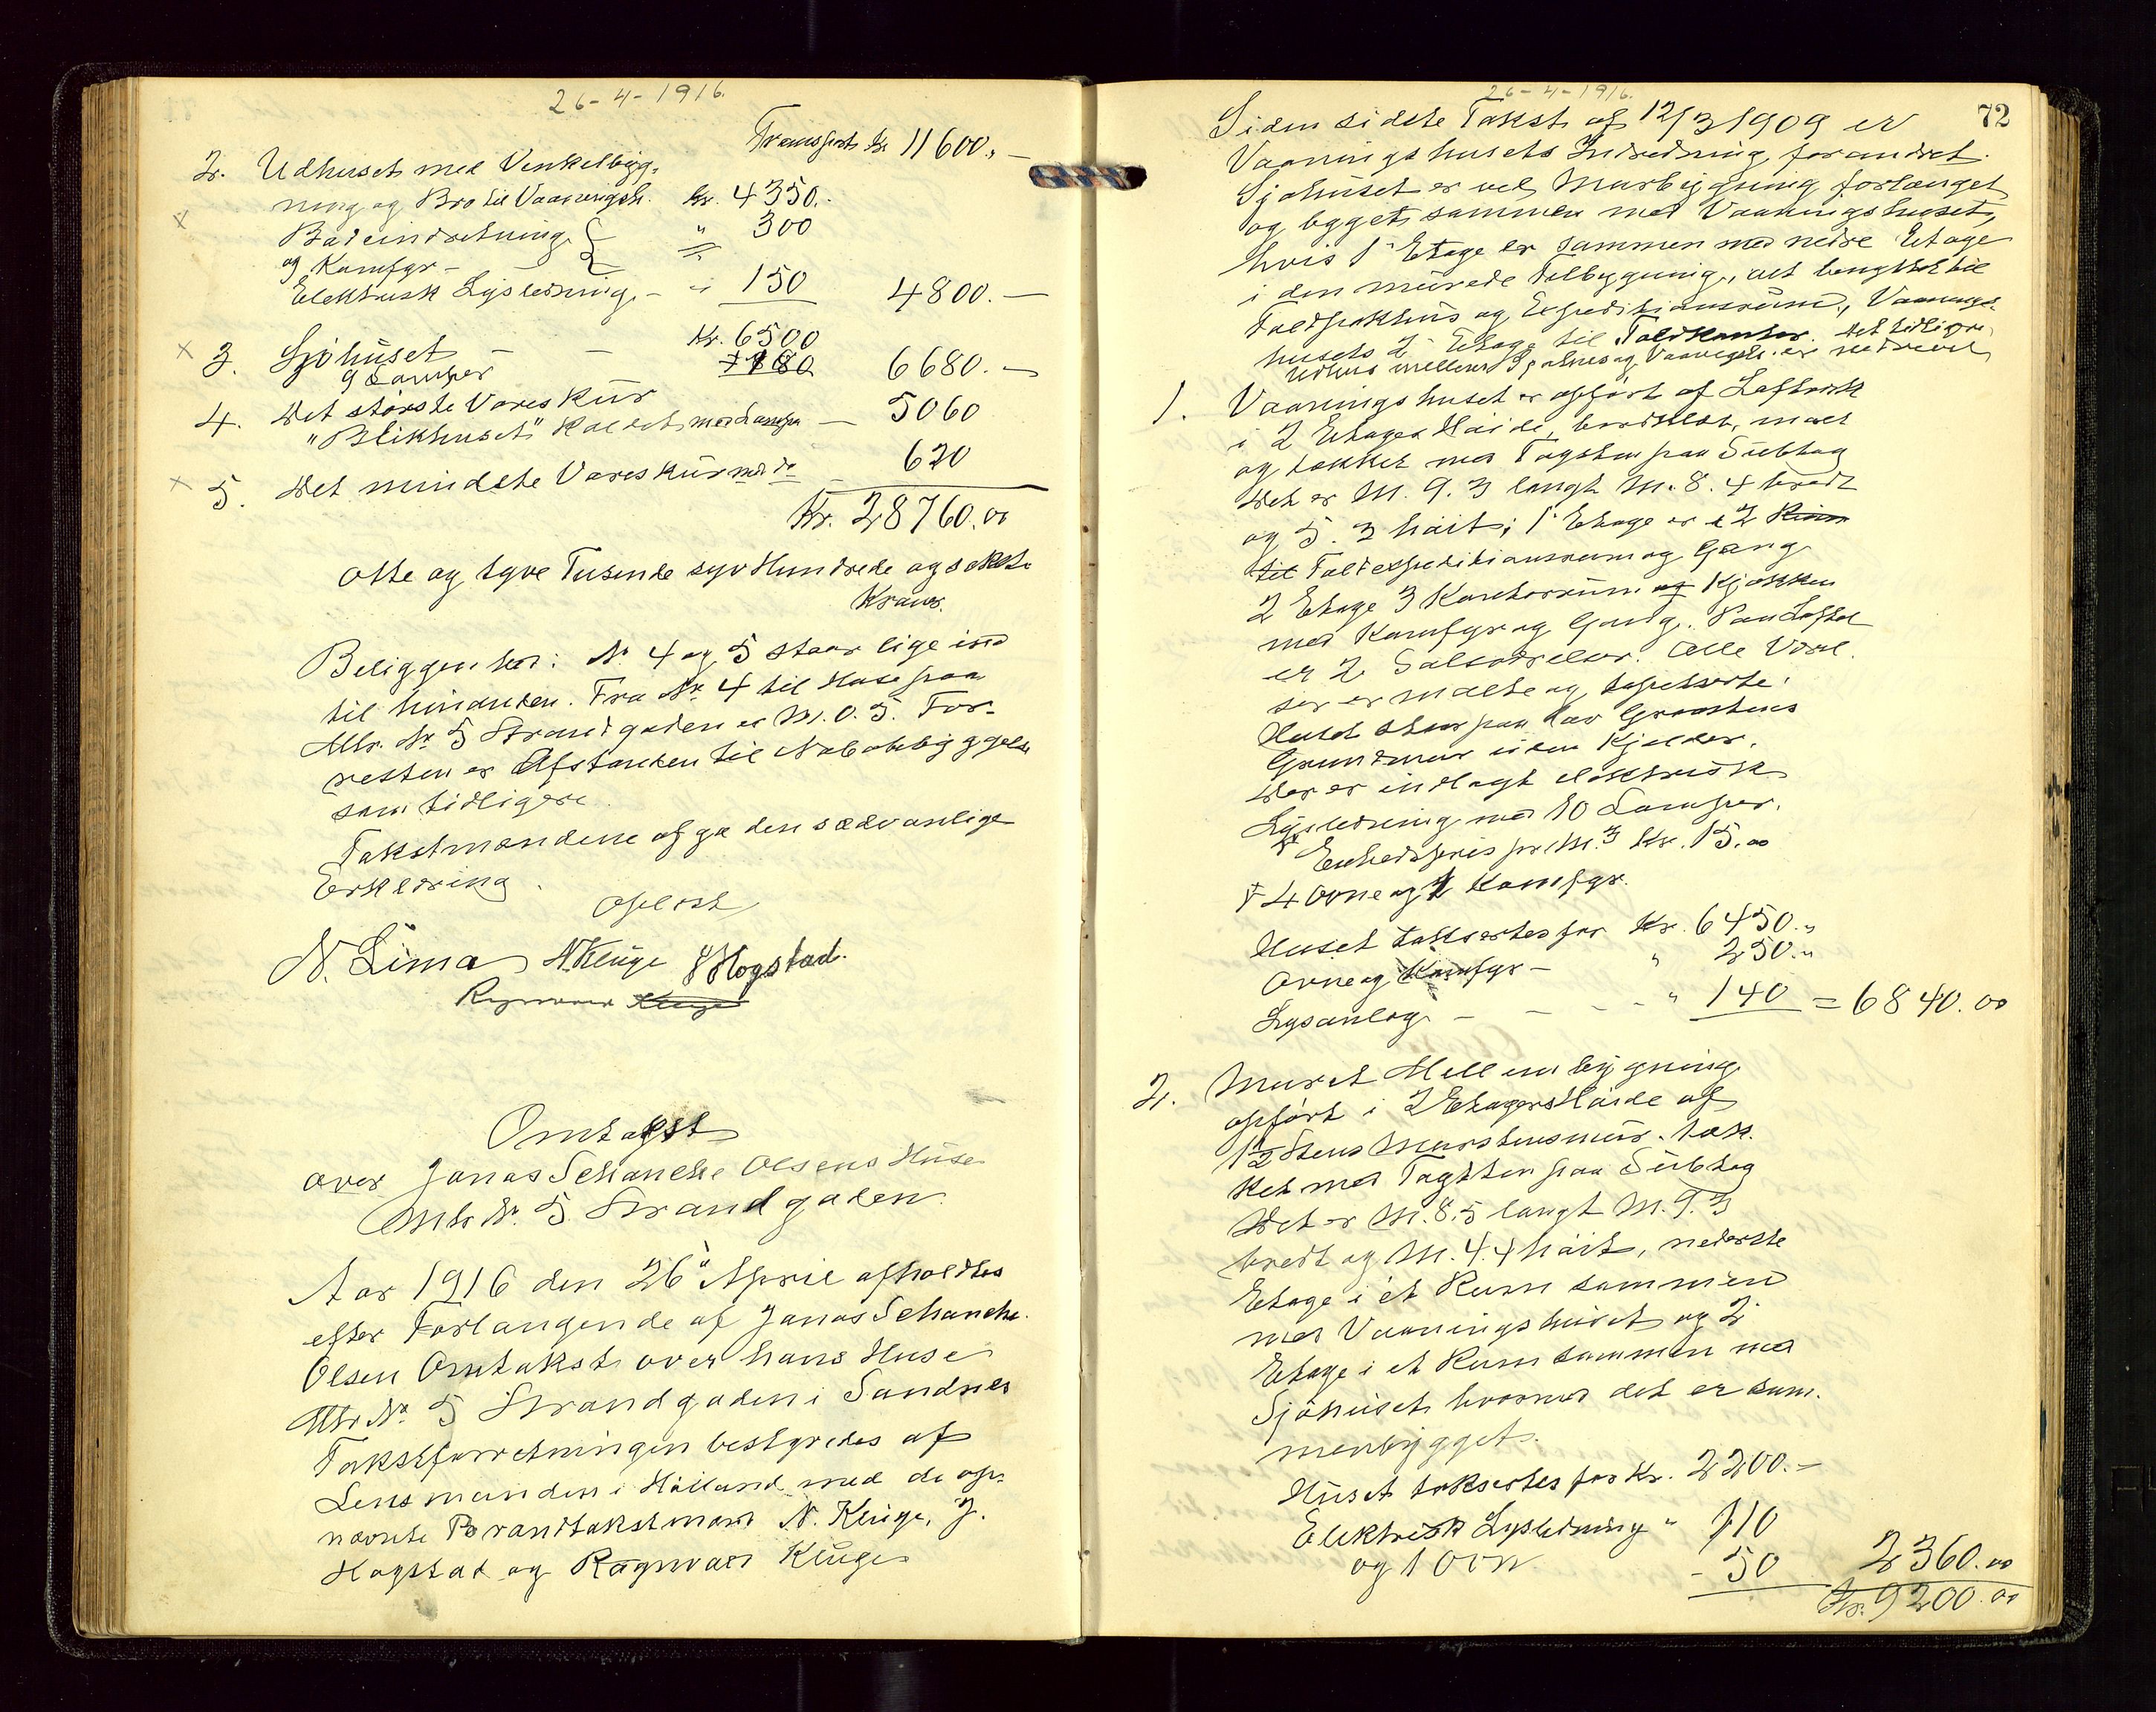 26-4-1916.
Transport kr 11600.-
2. Udhuset med Vinkelbyg-
ning og Bro til Vaaningsh. kr. 4350.-
Badeindretning " 300
og Komfyr -
Elektrisk Lysledning - " 150 4800.-
3. Sjøhuset - - Kr. 6500
9 Lamper 180 6680.-
4. Det største Vareskur
"Blikhuset" kaldet med Lamper - 5060
5. Det mindste Vareskur med do - 620
Kr. 28760.00
Otte og tyve Tusende syv Hundrede og seksti
Kroner.
Beliggenhed: Nr 4 og 5 staar lige ind
til hinanden. Fra Nr 4 til Huse paa
Mtr. Nr 5 Strandgaden er M. 0.5. For-
resten er Afstanden til Nabobebyggelse
som tidligere.
Takstmændene afga den sædvanlige
Erklæring.
Oplæst
N. Lima N. Kluge J Hogstad.
Ragnvald Kluge
Omtakst
over Jonas Schanche Olsens Huse
Mtr Nr. 5 Strandgaden.
Aar 1916 den 26de April afholdtes
efter Forlangende af Jonas Schanche
Olsen Omtakst over hans Huse
Mtr Nr. 5 Strandgaden i Sandnes
Takstforretningen bestyredes af
Lensmanden i Høiland med de op-
nævnte Brandtakstmænd N. Kluge, J.
Hogstad og Ragnvald Kluge
26-4-1916.
72
Siden sidste Takst af 12/3 1909 er
Vaaningshusets Indredning forandret.
Sjøhuset er ved Murbygning forlænget
og bygget sammen med Vaaningshuset,
hvis 1ste Etage er sammen med nedre Etage
i den murede Tilbygning, alt benyttet til
Toldpakhus og Expeditionsrum, Vaanings-
husets 2den Etage til Toldkontor. Det tidligere
Udhus mellem Sjøhus og Vaaningsh. er nedrevet
1. Vaaningshuset er opført af Laftværk
i 2 Etagers Høide, bordklædt, malet
og tækket med Tagsten paa Subtag
Det er M. 9.3 langt M. 8.4 bredt
og 5.3 høit; 1ste Etage er i 2 Rum
til Toldexpeditionsrum og Gang
2 Etage 3 Kontorrum og Kjøkken
med Komfyr og Gang. Paa Loftet
er 2 Salsværelser. Alle Værel-
ser er malte og tapetserte.
Huset staar paa lav Graastens
Grundmur uden Kjelder.
Der er indlagt elektrisk
Lysledning med 10 Lamper.
Enhedspris pr. M.3 Kr. 15.00
4 Ovne og 1 Komfyr.
Huset takseres for Kr. 6450.-
Ovne og Komfyr - " 250.-
Lysanlæg - - - " 140 = 6840.00
2. Muret Mellembygning
opført i 2 Etagers Høide af
1½ Stens Murstensmur. tæk-
ket med Tagsten paa Subtag
Det er M. 8.5 langt M. 9.3
bredt og M. 4.4 høit, nederste
Etage i et Rum sammen
med Vaaningshuset og 2
Etage i et Rum sammen med
Sjøhuset hvormed det er sam-
menbygget.
Huset takseres for Kr. 2200.-
Elektrisk Lysledning " 110
og 1 Ovn - 50 2360.00
Kr. 9200.00